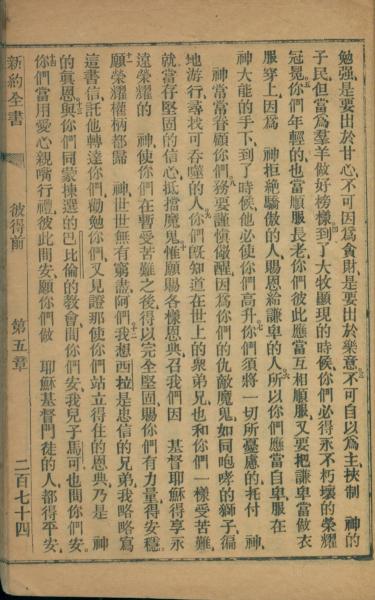 勉强、是要出於甘心、不可因為貪財、是要出於樂意、不可自以為主、挾制　神的
子民、但當為羣羊做好榜樣、到了大牧顯現的時候、你們必得永不朽壞的榮耀
冠冕、你們年輕的、也當順服長老、你們彼此應當互相順服、又要把謙卑當做衣
服穿上、因為　神拒絕驕傲的人、賜恩給謙卑的人、所以你們應當自卑、服在
神大能的手下、到了時候、他必使你們高升、你們須將一切所憂慮的、托付　神、
神常常眷顧你們、務要謹慎儆醒、因為你們的仇敵魔鬼、如同咆哮的獅子、徧
地游行、尋找可吞噬的人、你們旣知道在世上的衆弟兄、也和你們一樣受苦難、
就當存堅固的信心、抵擋魔鬼、惟願賜各樣恩典、召我們因　基督耶穌得享永
遠榮耀的　神、使你們在暫受苦難之後、得以完全堅固、賜你們有力量、得安穩、
願榮耀權柄都歸　神、世世無有窮盡、阿們、我想西拉是忠信的兄弟、我略略寫
這書信、託他轉達你們、勸勉你們、又見證那使你們站立得住的恩典、乃是　神
的眞恩、與你們同蒙揀選的巴比倫的敎會、問你們安、我兒子馬可也問你們安、
你們當用愛心親嘴行禮、彼此問安、願你們做　耶穌基督門徒的人、都得平安、
新約全書
彼得前
第五章
二百七十四